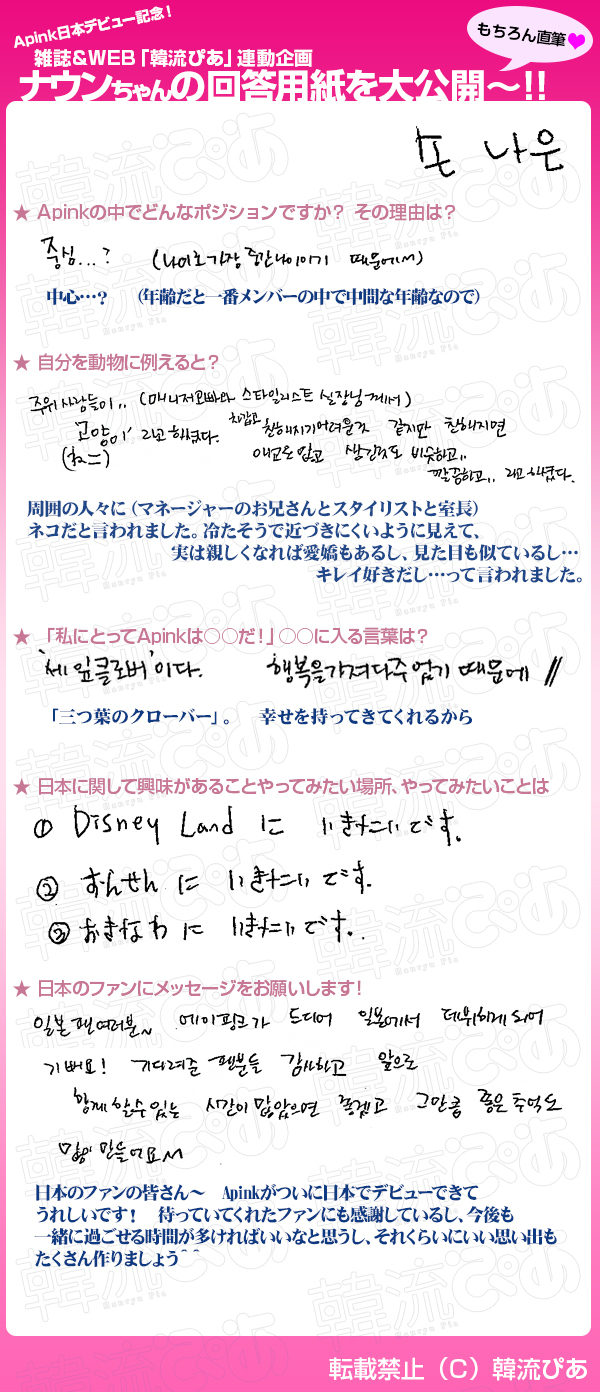 Apink日本デビュー記念！
もちろん直筆♥
雑誌＆WEB「韓流ぴあ」連動企画
ナウンちゃんの回答用紙を大公開～!!
손 나은
★ Apinkの中でどんなポジションですか？ その理由は？
중심...? (나이로 가장 중간나이이기 때문에서)
中心…？ （年齢だと一番メンバーの中で中間な年齢なので）
★ 自分を動物に例えると？
주위 사람들이,, (매니저오빠와 스타일리스트 실장님께서)
'고양이' 라고 하셨다. 차갑고 친해지기어려울것 같지만 친해지면
(ねこ) 애교은 있고 생긴것도 비슷하고,,
깔끔하고,, 라고 하셨다.
周囲の人々に（マネージャーのお兄さんとスタイリストと室長）
ネコだと言われました。冷たそうで近づきにくいように見えて、
実は親しくなれば愛嬌もあるし、見た目も似ているし…
キレイ好きだし…って言われました。
★ 「私にとってApinkは○○だ！」○○に入る言葉は？
'세잎클로버'이다. 행복을가져다주었기 때문에 //
「三つ葉のクローバー」。 幸せを持ってきてくれるから
★ 日本に関して興味があることやってみたい場所、やってみたいことは
① Disney Land に いきたいです.
② おんせん に いきたいです.
③ おきなわ に いきたいです.
★ 日本のファンにメッセージをお願いします！
일본팬여러분~ 에이핑크가 드디어 일본에서 데뷔하게 되어
기뻐요! 기다려준 팬분들 감사하고 앞으로
함께 할수있는 시간이 많았으면 좋겠고 그만큼 좋은추억도
많이 만들어요
日本のファンの皆さん～ Apinkがついに日本でデビューできて
うれしいです！ 待っていてくれたファンにも感謝しているし、今後も
一緒に過ごせる時間が多ければいいなと思うし、それくらいにいい思い出も
たくさん作りましょう^^
転載禁止（C）韓流ぴあ